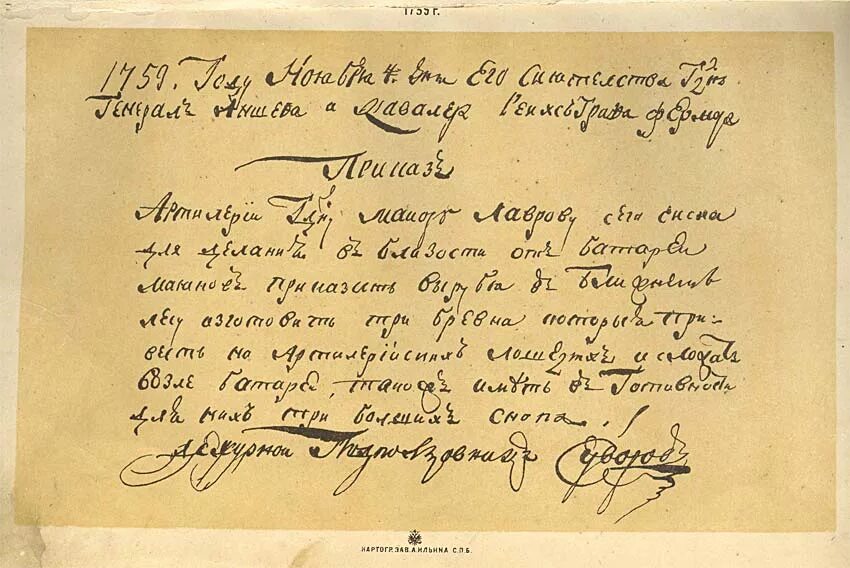 1759 г.
1759. Году Ноября 4. дня Его Сиятелства Гдна
Генералъ Аншева и Кавалер Рейхсъ Графа Фермора
Приказъ
Артилерiи Гдну маиору Лаврову сего числа
для делания въ близости отъ батареи
маяковъ приказать вырубя въ ближнемъ
лесу изготовить три бревна которые при-
весть на Артилерiйскихъ лошедяхъ и складть
возле батареи, такожъ иметь въ Готовности
для нихъ три болшихъ снопа.
Дежурной Подполковникъ Суворовъ
КАРТОГР. ЗАВ. А. ИЛЬИНА С.П.Б.